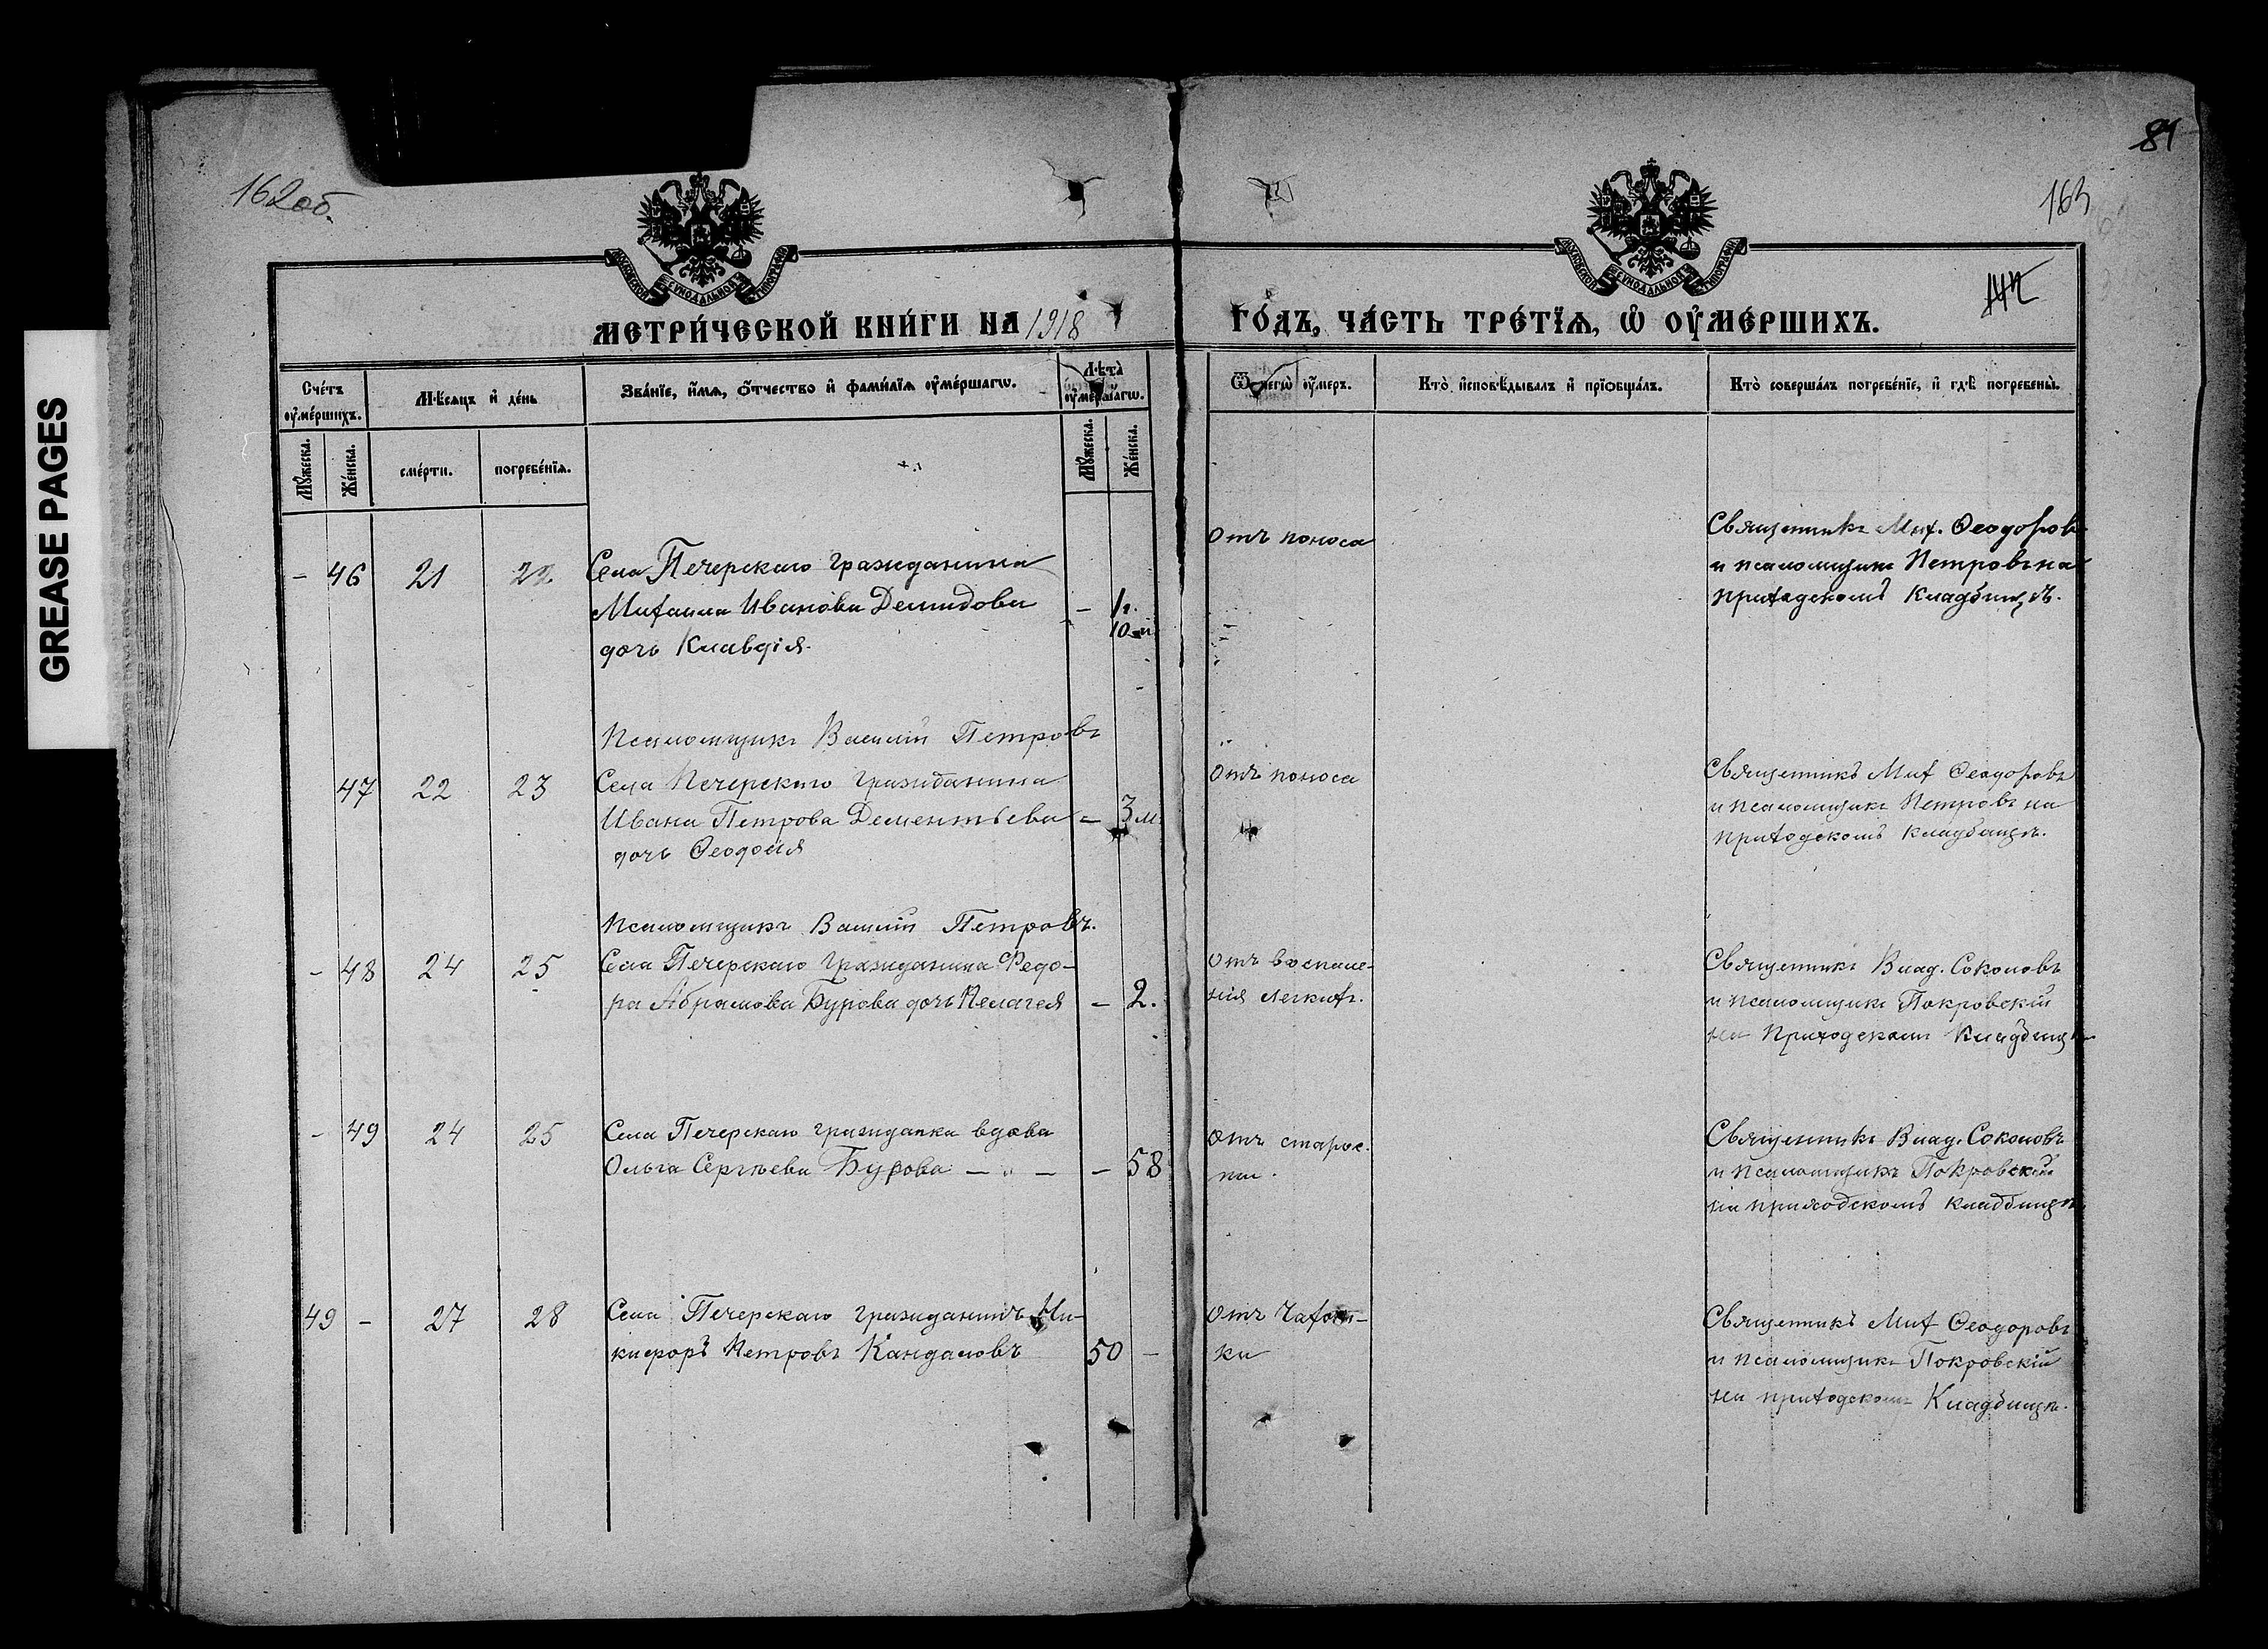 GREASE PAGES
162об.
84
163
МЕТРИ́ЧЕСКОЙ КНИ́ГИ НА 1918
ГО́ДЪ, ЧА́СТЬ ТРЕ́ТЇѦ, Ѡ҆ ОУ҆МЕ́РШИХЪ.
Сче́тъ оу҆ме́ршихъ.
Мѣ́сѧцъ и҆ де́нь
Зва́нїе, и҆́мѧ, ѻ҆́тчество и҆ фами́лїѧ оу҆ме́ршагѡ.
Лѣта̀ оу҆ме́ршагѡ.
Ѿ чегѡ̀ оу҆́меръ.
Кто̀ и҆сповѣ́дывалъ и҆ прїѡбща́лъ.
Кто̀ соверша́лъ погребе́нїе, и҆ гдѣ̀ погребены̀.
Мꙋ́жеска.
Же́нска.
сме́рти.
погребе́нїѧ.
Мꙋ́жеска.
Же́нска.
- 46 21 22 Села Печерскаго гражданина
Михаила Иванова Демидова - 1 г.
10 м
дочь Клавдія.
Отъ поноса
Священникъ Мих. Ѳеодоровъ
и псаломщикъ Петровъ на
приходскомъ кладбищѣ.
Псаломщикъ Василій Петровъ
47 22 23 Села Печерскаго гражданина
Ивана Петрова Дементьева - 3 м.
дочь Ѳеодосія
Отъ поноса
Священникъ Мих Ѳеодоровъ
и псаломщикъ Петровъ на
приходскомъ кладбищѣ.
Псаломщикъ Василій Петровъ.
- 48 24 25 Села Печерскаго гражданина Федо-
ра Абрамова Бурова дочь Пелагея - 2.
Отъ воспале-
нія легкихъ.
Священникъ Влад. Соколовъ
и псаломщикъ Покровскій
на приходскомъ кладбищѣ
- 49 24 25 Села Печерскаго гражданка вдова
Ольга Сергѣева Бурова - " - - 58
Отъ старос-
ти.
Священникъ Влад. Соколовъ
и псаломщикъ Покровскій
на приходскомъ кладбищѣ
49 - 27 28 Села Печерскаго гражданинъ Ни-
кифоръ Петровъ Кандаловъ 50 -
Отъ Чахот-
ки
Священникъ Мих Ѳеодоровъ
и псаломщикъ Покровскій
на приходскомъ Кладбищѣ.